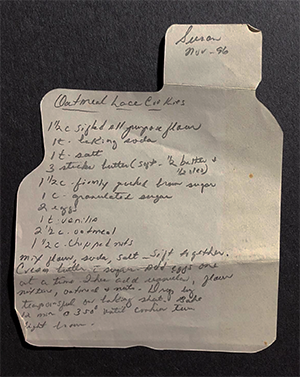 Susan
Nov - 96
Oatmeal Lace Cookies
1 1/2 c sifted all purpose flour
1 t. baking soda
1 t. salt
3 sticks butter (sgst - 1/2 butter &
1/2 oleo)
1 1/2 c. firmly packed brown sugar
1 c - granulated sugar
2 eggs
1 t. vanilla
2 1/2 c. oatmeal
1 1/2 c. chopped nuts
mix flour, soda, salt - sift together.
Cream butter & sugar - add eggs one
at a time then add vanilla, flour
mixture, oatmeal & nuts. Drop by
teaspoonful on baking sheet. Bake
min @ 350 until cookies turn
light brown.